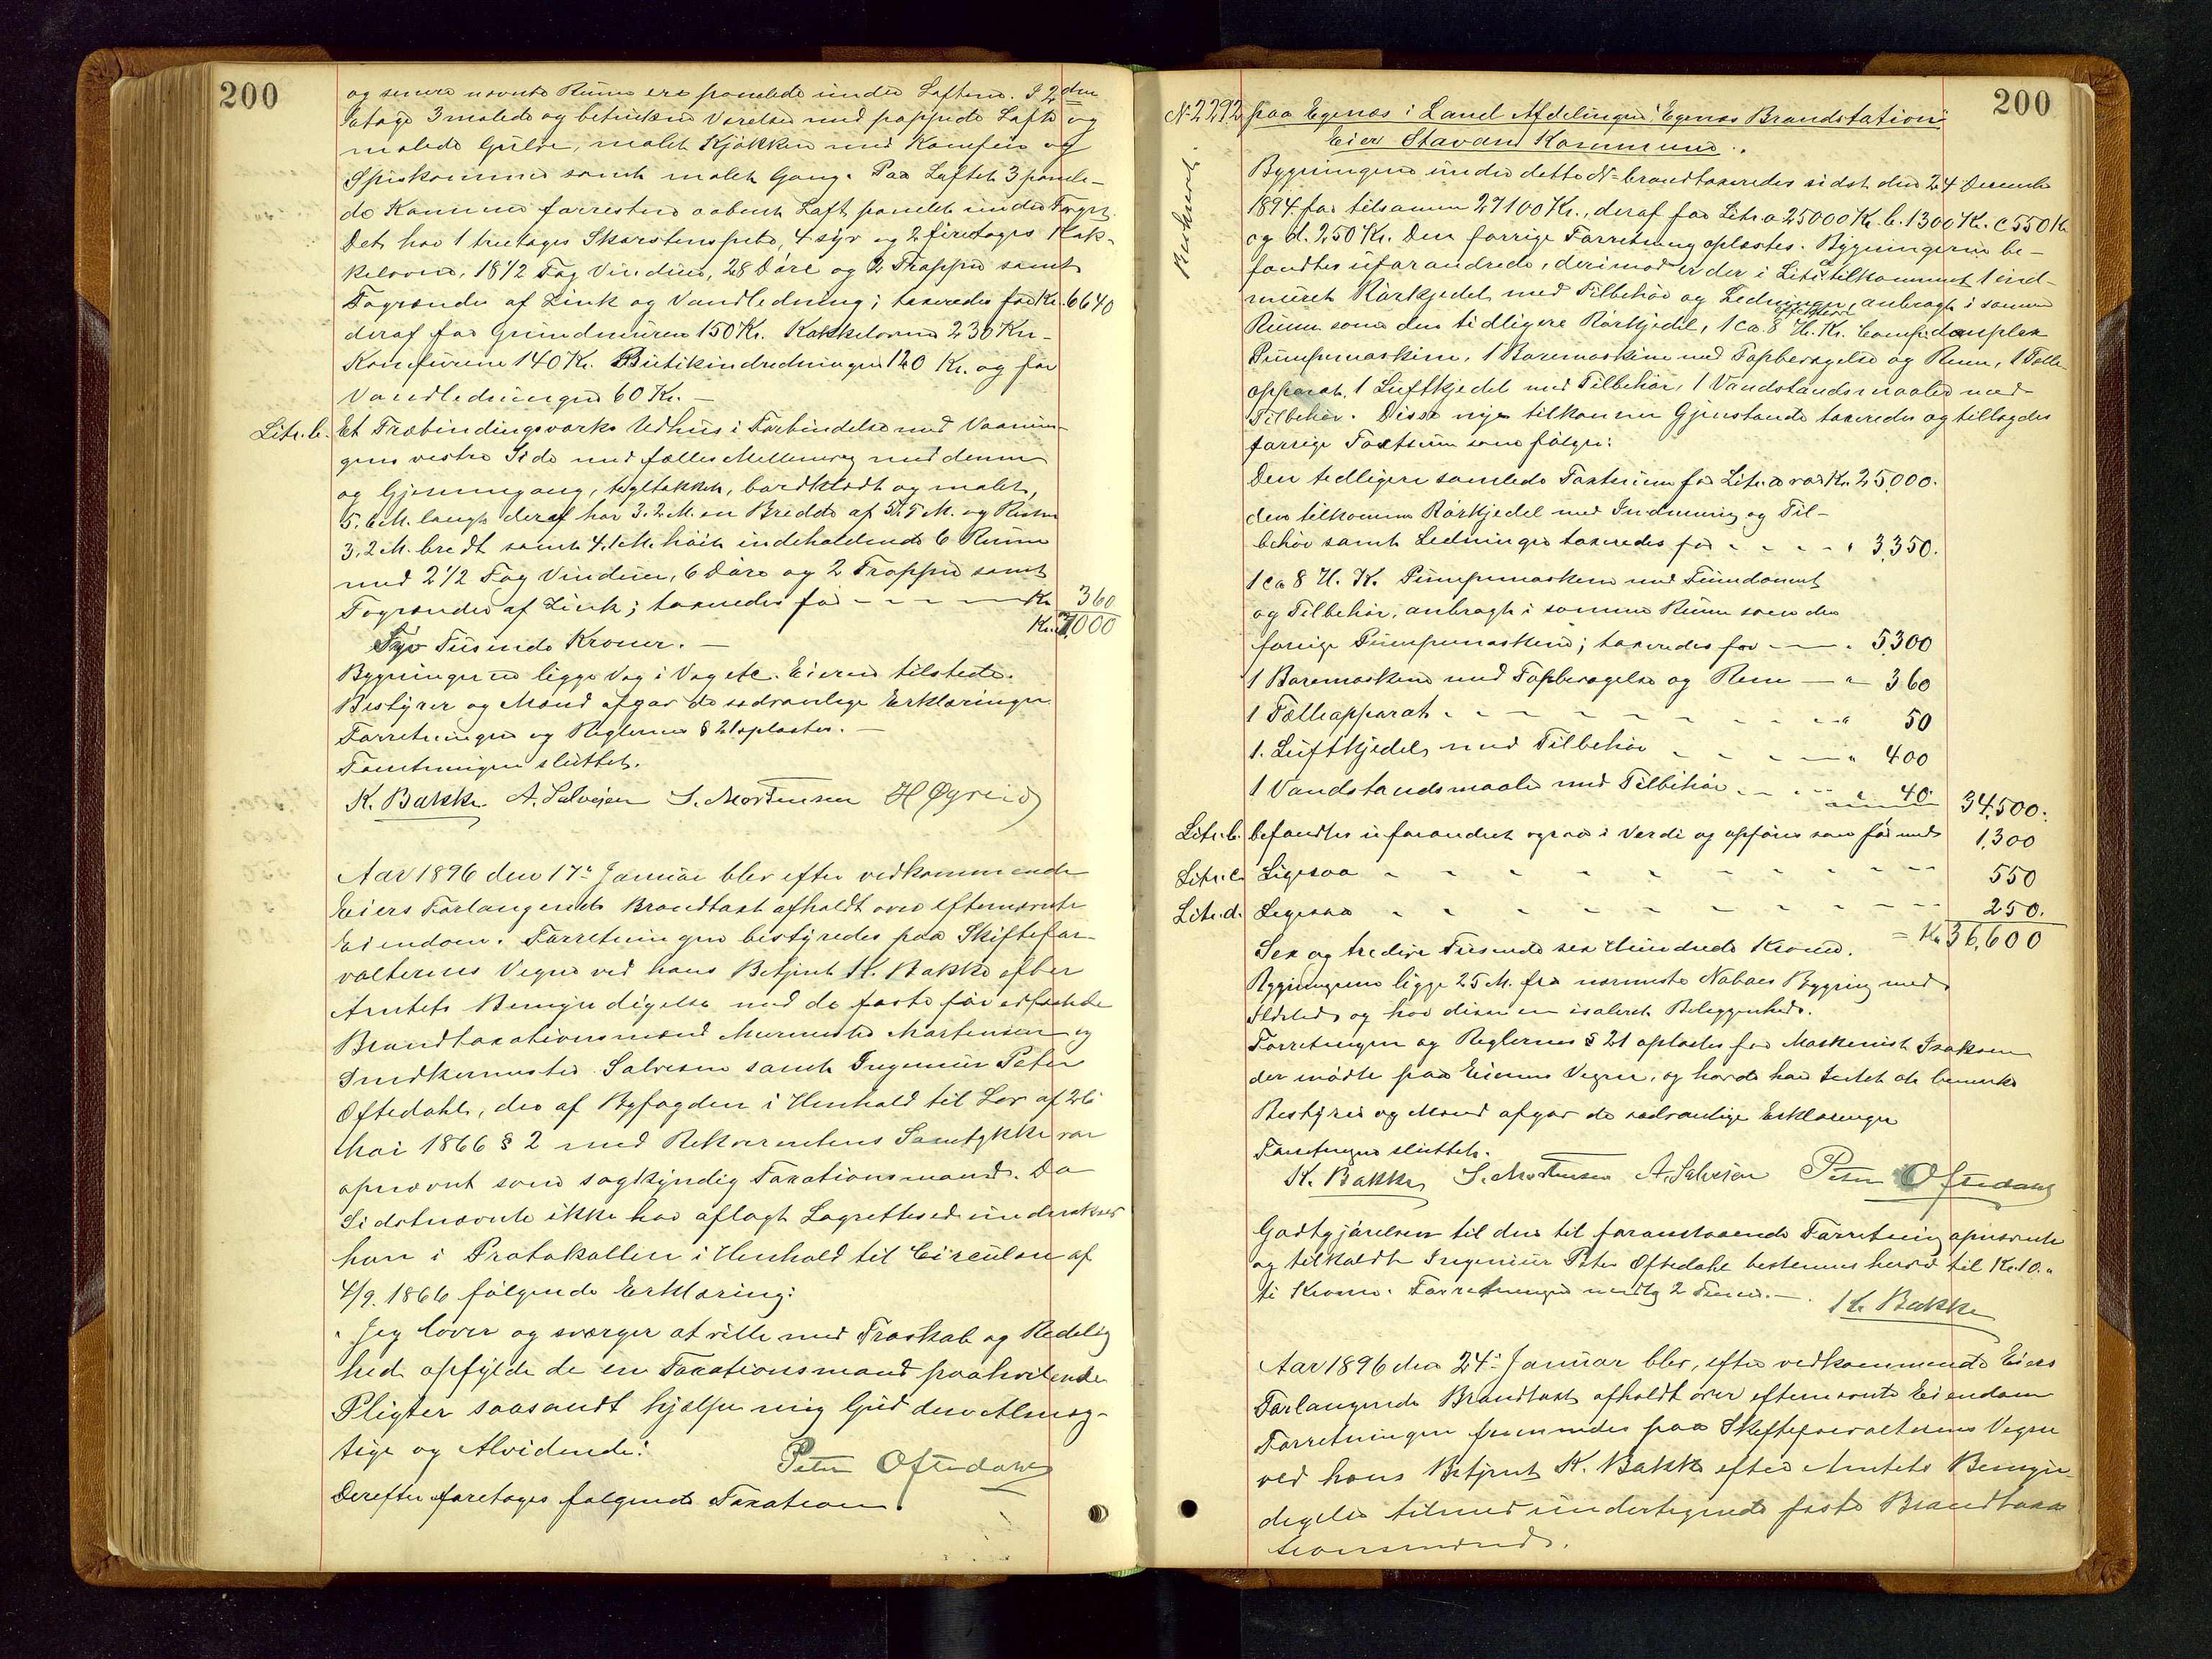 200
og senere nævnte Rum ere panelede under Loftene. I 2den
Etage 3 malede og betrukne Værelser med pappede Lofte og
malede Gulve, malet Kjøkken med Komfur og
Spiskammer samt malet Gang. Paa Loftet 3 panele-
de Kammer forresten aabent Loft panelet under Taget.
Det har 1 treetages Skorstenspibe, 4 syv og 2 fireetages Kak-
kelovne, 18 1/2 Fag Vinduer, 28 Døre og 2 Trapper samt
Tagrender af Zink og Vandledning; taxeredes for Kr. 6640
deraf for Grundmuren 150 Kr. Kakkelovne 230 Kr. -
Komfurene 140 Kr. Butikindredningen 120 Kr. og for
Vandledningen 60 Kr. -
Litr. b. Et Træbindingsværks Udhus i Forbindelse med Vaanin-
gens vestre Side med fælles Mellemvæg med denne
og Gjennemgang, tegltækket, bordklædt og malet,
5.6 M. langt deraf har 3.2 M. en Bredde af 5.5 M. og Resten
3.2 M. bredt samt 4.1 M. høit indeholdende 6 Rum
med 2 1/2 Fag Vinduer, 6 Døre og 2 Trapper samt
Tagrender af Zink; taxeredes for - - - - - Kr. 360
Kr. 7000
Syv Tusinde Kroner. -
Bygningerne ligge Væg i Væg etc. Eieren tilstede.
Bestyrer og Mænd afgav de sædvanlige Erklæringer
Forretningen og Reglernes § 21 oplæstes. -
Forretningen sluttet.
K. Bakke A. Salvesen S. Mortensen H Øgreid
Aar 1896 den 17de Januar blev efter vedkommende
Eiers Forlangende Brandtaxt afholdt over efternævnte
Eiendom. Forretningen bestyredes paa Skiftefor-
valterens Vegne ved hans Betjent K. Bakke efter
Amtets Bemyndigelse med de faste før edfæstede
Brandtaxationsmænd Murmester Mortensen og
Snedkermester Salvesen samt Ingeniør Peter
Oftedahl, der af Byfogden i Henhold til Lov af 26
Mai 1866 § 2 med Rekvirentens Samtykke var
opnævnt som sagkyndig Taxationsmand. Da
Sidstnævnte ikke har aflagt Lagretteseed underskrev
han i Protokollen i Henhold til Circulære af
4/9. 1866 følgende Erklæring:
" Jeg lover og sværger at ville med Troskab og Redelig
hed opfylde de en Taxationsmand paahvilende
Pligter saasandt hjælpe mig Gud den Almæg-
tige og Alvidende."
Peter Oftedahl
Derefter foretoges følgende Taxation.
200
No 2292 paa Egenæs i Land Afdelingen "Egenæs Brandstation"
Eier Stavang Kommune.
Bygningerne under dette No brandtaxeredes sidst den 24 December
1894 for tilsammen 27100 Kr., deraf for Litr. a 25000 Kr. b. 1300 Kr. c 550 Kr.
og d. 250 Kr. Den forrige Forretning oplæstes. Bygningerne be-
fandtes uforandrede, derimod er der i Litr. a tilkommet 1 ind-
muret Rørkjedel med Tilbehør og Ledninger, anbragt i samme
Rum som den tidligere Rørkjedel, 1 ca. 8 effektive H. Kr. Comp. duplex
Pumpemaskine, 1 Boremaskine med Topbevægelse og Rem, 1 Tælle-
apparat, 1 Luftkjedel med Tilbehør, 1 Vandstandsmaaler med
Tilbehør. Disse nye tilkomne Gjenstande taxeredes og tillagdes
forrige Taxtsum som følger:
Den tidligere samlede Taxtsum for Litr. a var Kr. 25,000.
den tilkomne Rørkjedel med Indmuring og Til-
behør samt Ledninger taxeredes for - - - " 3,350.
1 ca 8 H. K. Pumpemaskine med Fundament
og Tilbehør, anbragt i samme Rum som den
forrige Pumpemaskine; taxeredes for - - " 5,300
1 Boremaskine med Topbevægelse og Rem - " 360
1 Tælleapparat - - - - - - - - " 50
1. Luftkjedel med Tilbehør - - - - " 400
1 Vandstandsmaaler med Tilbehør - - - " 40 34,500.
Litr. b. befandtes uforandret ogsaa i Værdi og opføres som før med 1,300
Litr. c. Ligesaa - - - - - - - - - - 550
Litr. d. Ligesaa - - - - - - - - - - 250.
= Kr. 36,600
Sex og tredive Tusinde sex Hundrede Kroner.
Bygningerne ligge 25 M. fra nærmeste Naboes Bygning med
Ildsted og har disse en isoleret Beliggenhed.
Forretningen og Reglernes § 21 oplæstes for Maskinist Isaksen
der mødte paa Eierens Vegne, og havde han Intet at bemærke
Bestyrer og Mænd afgav de sædvanlige Erklæringer
Forretningen sluttet.
K. Bakke S. Mortensen A. Salvesen Peter Oftedahl
Godtgjørelsen til den til foranstaaende Forretning opnævnte
og tilkaldte Ingeniør Peter Oftedahl bestemmes herved til Kr. 10.-
ti Kroner. Forretningen medtog 2 Timer. -
K. Bakke
Aar 1896 den 24de Januar blev, efter vedkommende Eiers
Forlangende Brandtaxt afholdt over efternævnte Eiendom
Forretningen fremmedes paa Skifteforvalterens Vegne
ved hans Betjent K. Bakke efter Amtets Bemyn-
digelse tilmed undertegnede faste Brandtaxa
tionsmænd.